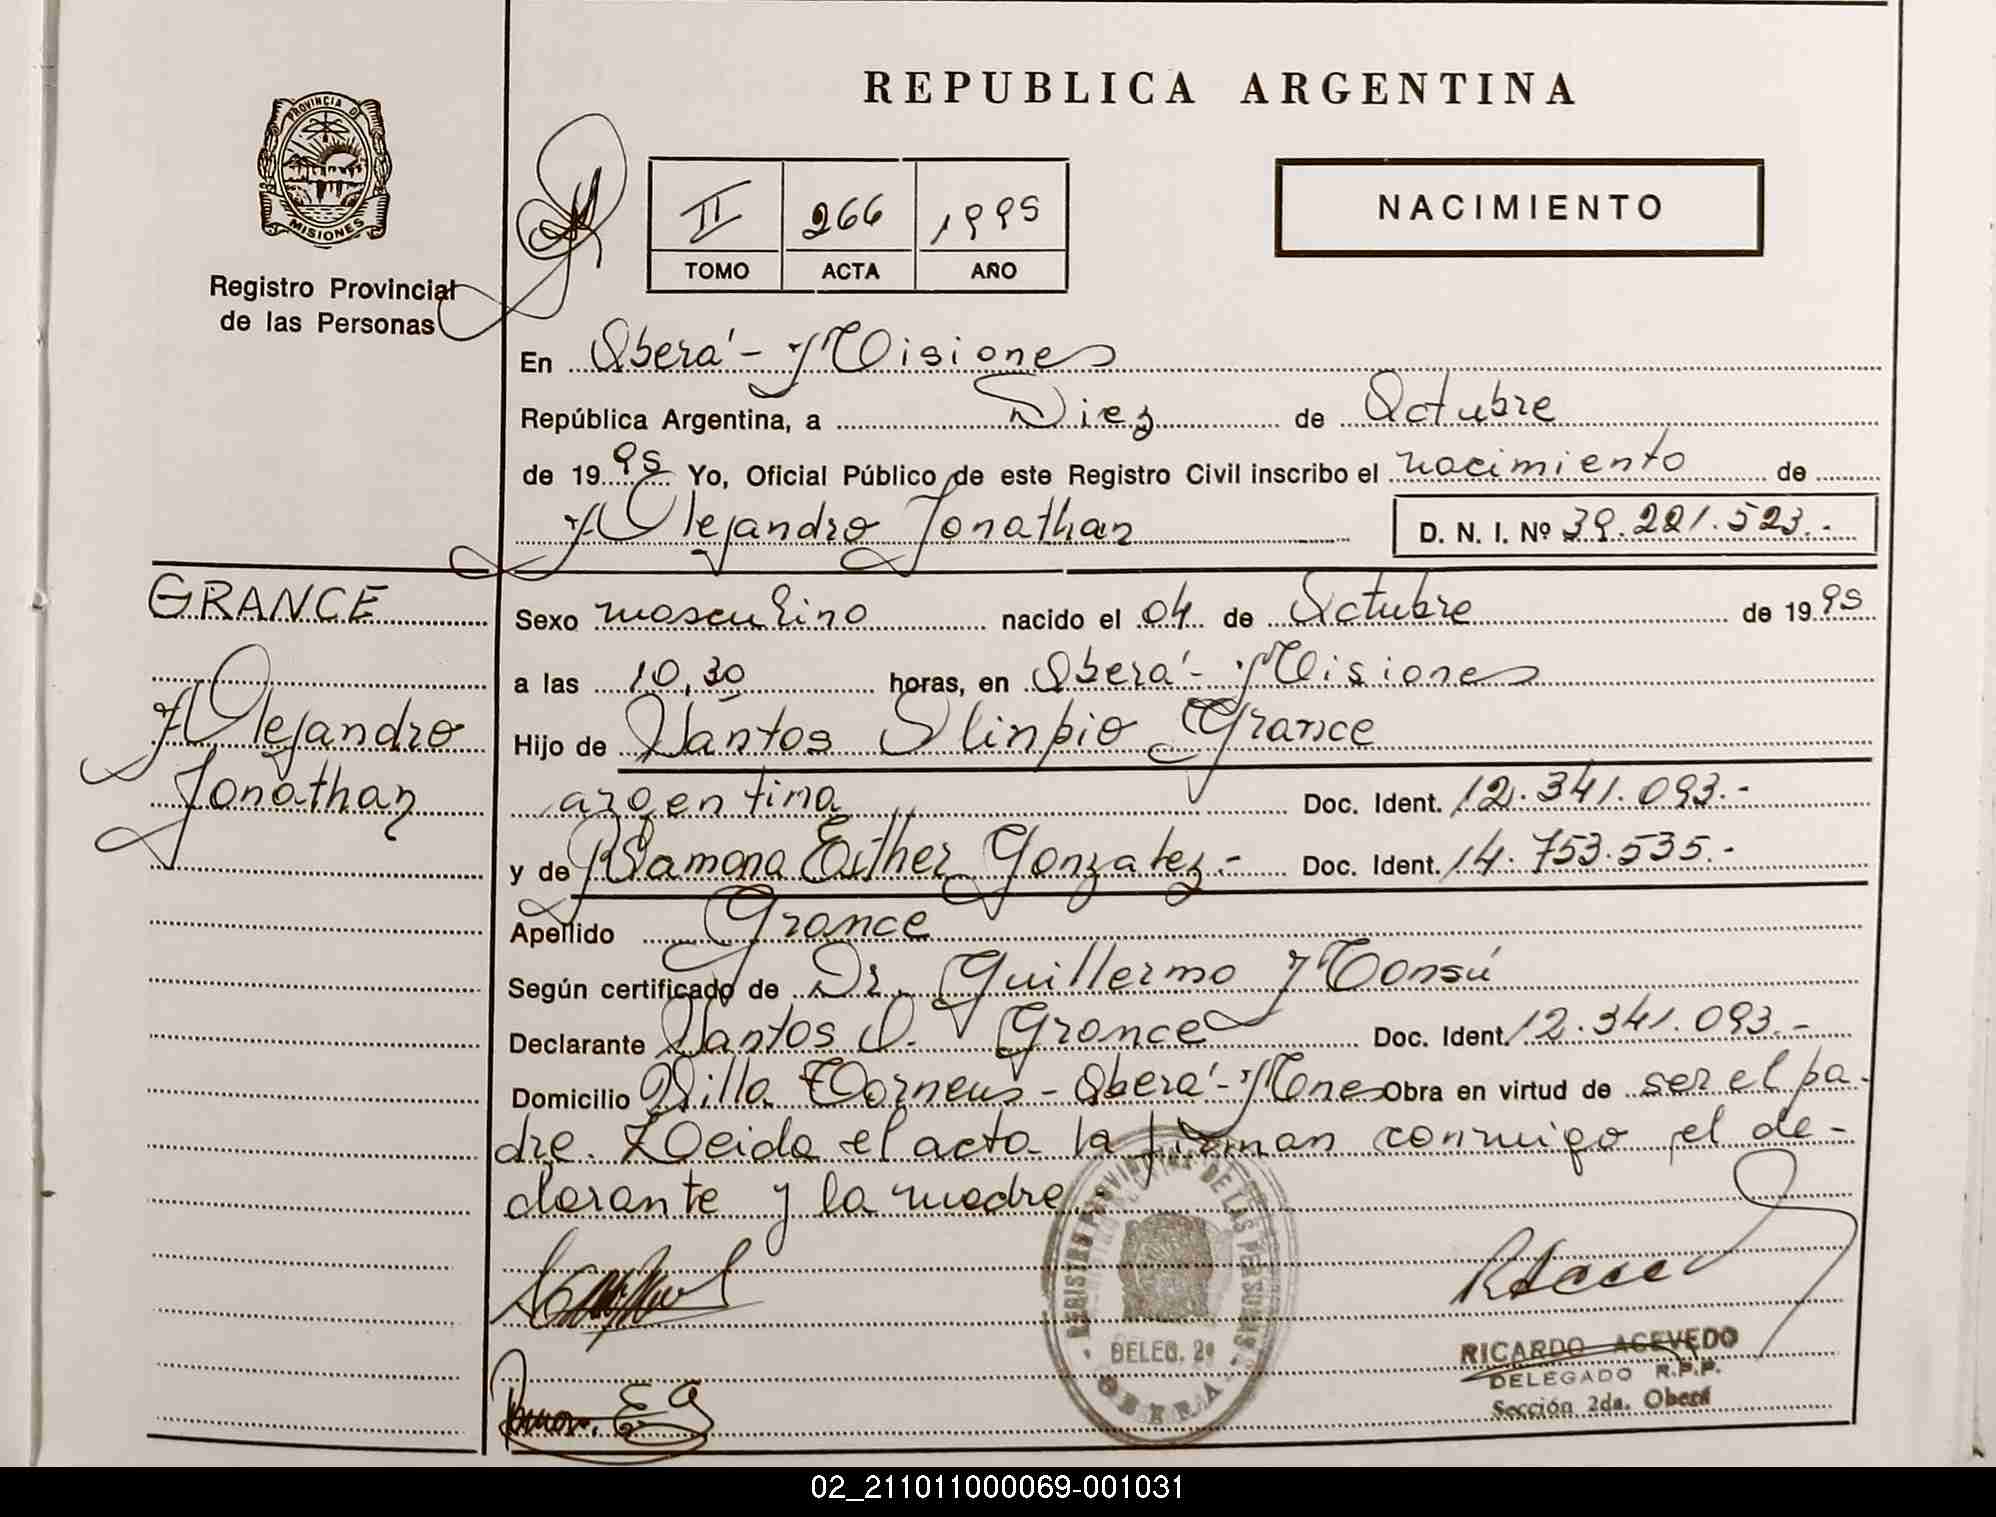 REPUBLICA ARGENTINA
PROVINCIA DE
MISIONES
Registro Provincial
de las Personas
II 266 1995
TOMO ACTA AÑO
NACIMIENTO
En Oberá - Misiones
República Argentina, a Diez de Octubre
de 1995 Yo, Oficial Público de este Registro Civil inscribo el nacimiento de
Alejandro Jonathan D. N. I. Nº 39.221.523.-
GRANCE
Alejandro
Jonathan
Sexo masculino nacido el 04 de Octubre de 1995
a las 10,30 horas, en Oberá - Misiones
Hijo de Santos Olinpio Grance
argentina Doc. Ident. 12.341.093.-
y de Ramona Esther Gonzalez.- Doc. Ident. 14.753.535.-
Apellido Grance
Según certificado de Dr. Guillermo Monsú
Declarante Santos O. Grance Doc. Ident. 12.341.093.-
Domicilio Villa Torneus - Oberá - Mnes Obra en virtud de ser el pa-
dre. Leida el acta la firman conmigo el de-
clarante y la madre.
REGISTRO PROVINCIAL DE LAS PERSONAS
DELEG. 2ª
OBERA
RICARDO ACEVEDO
DELEGADO R.P.P.
Sección 2da. Oberá
02_211011000069-001031